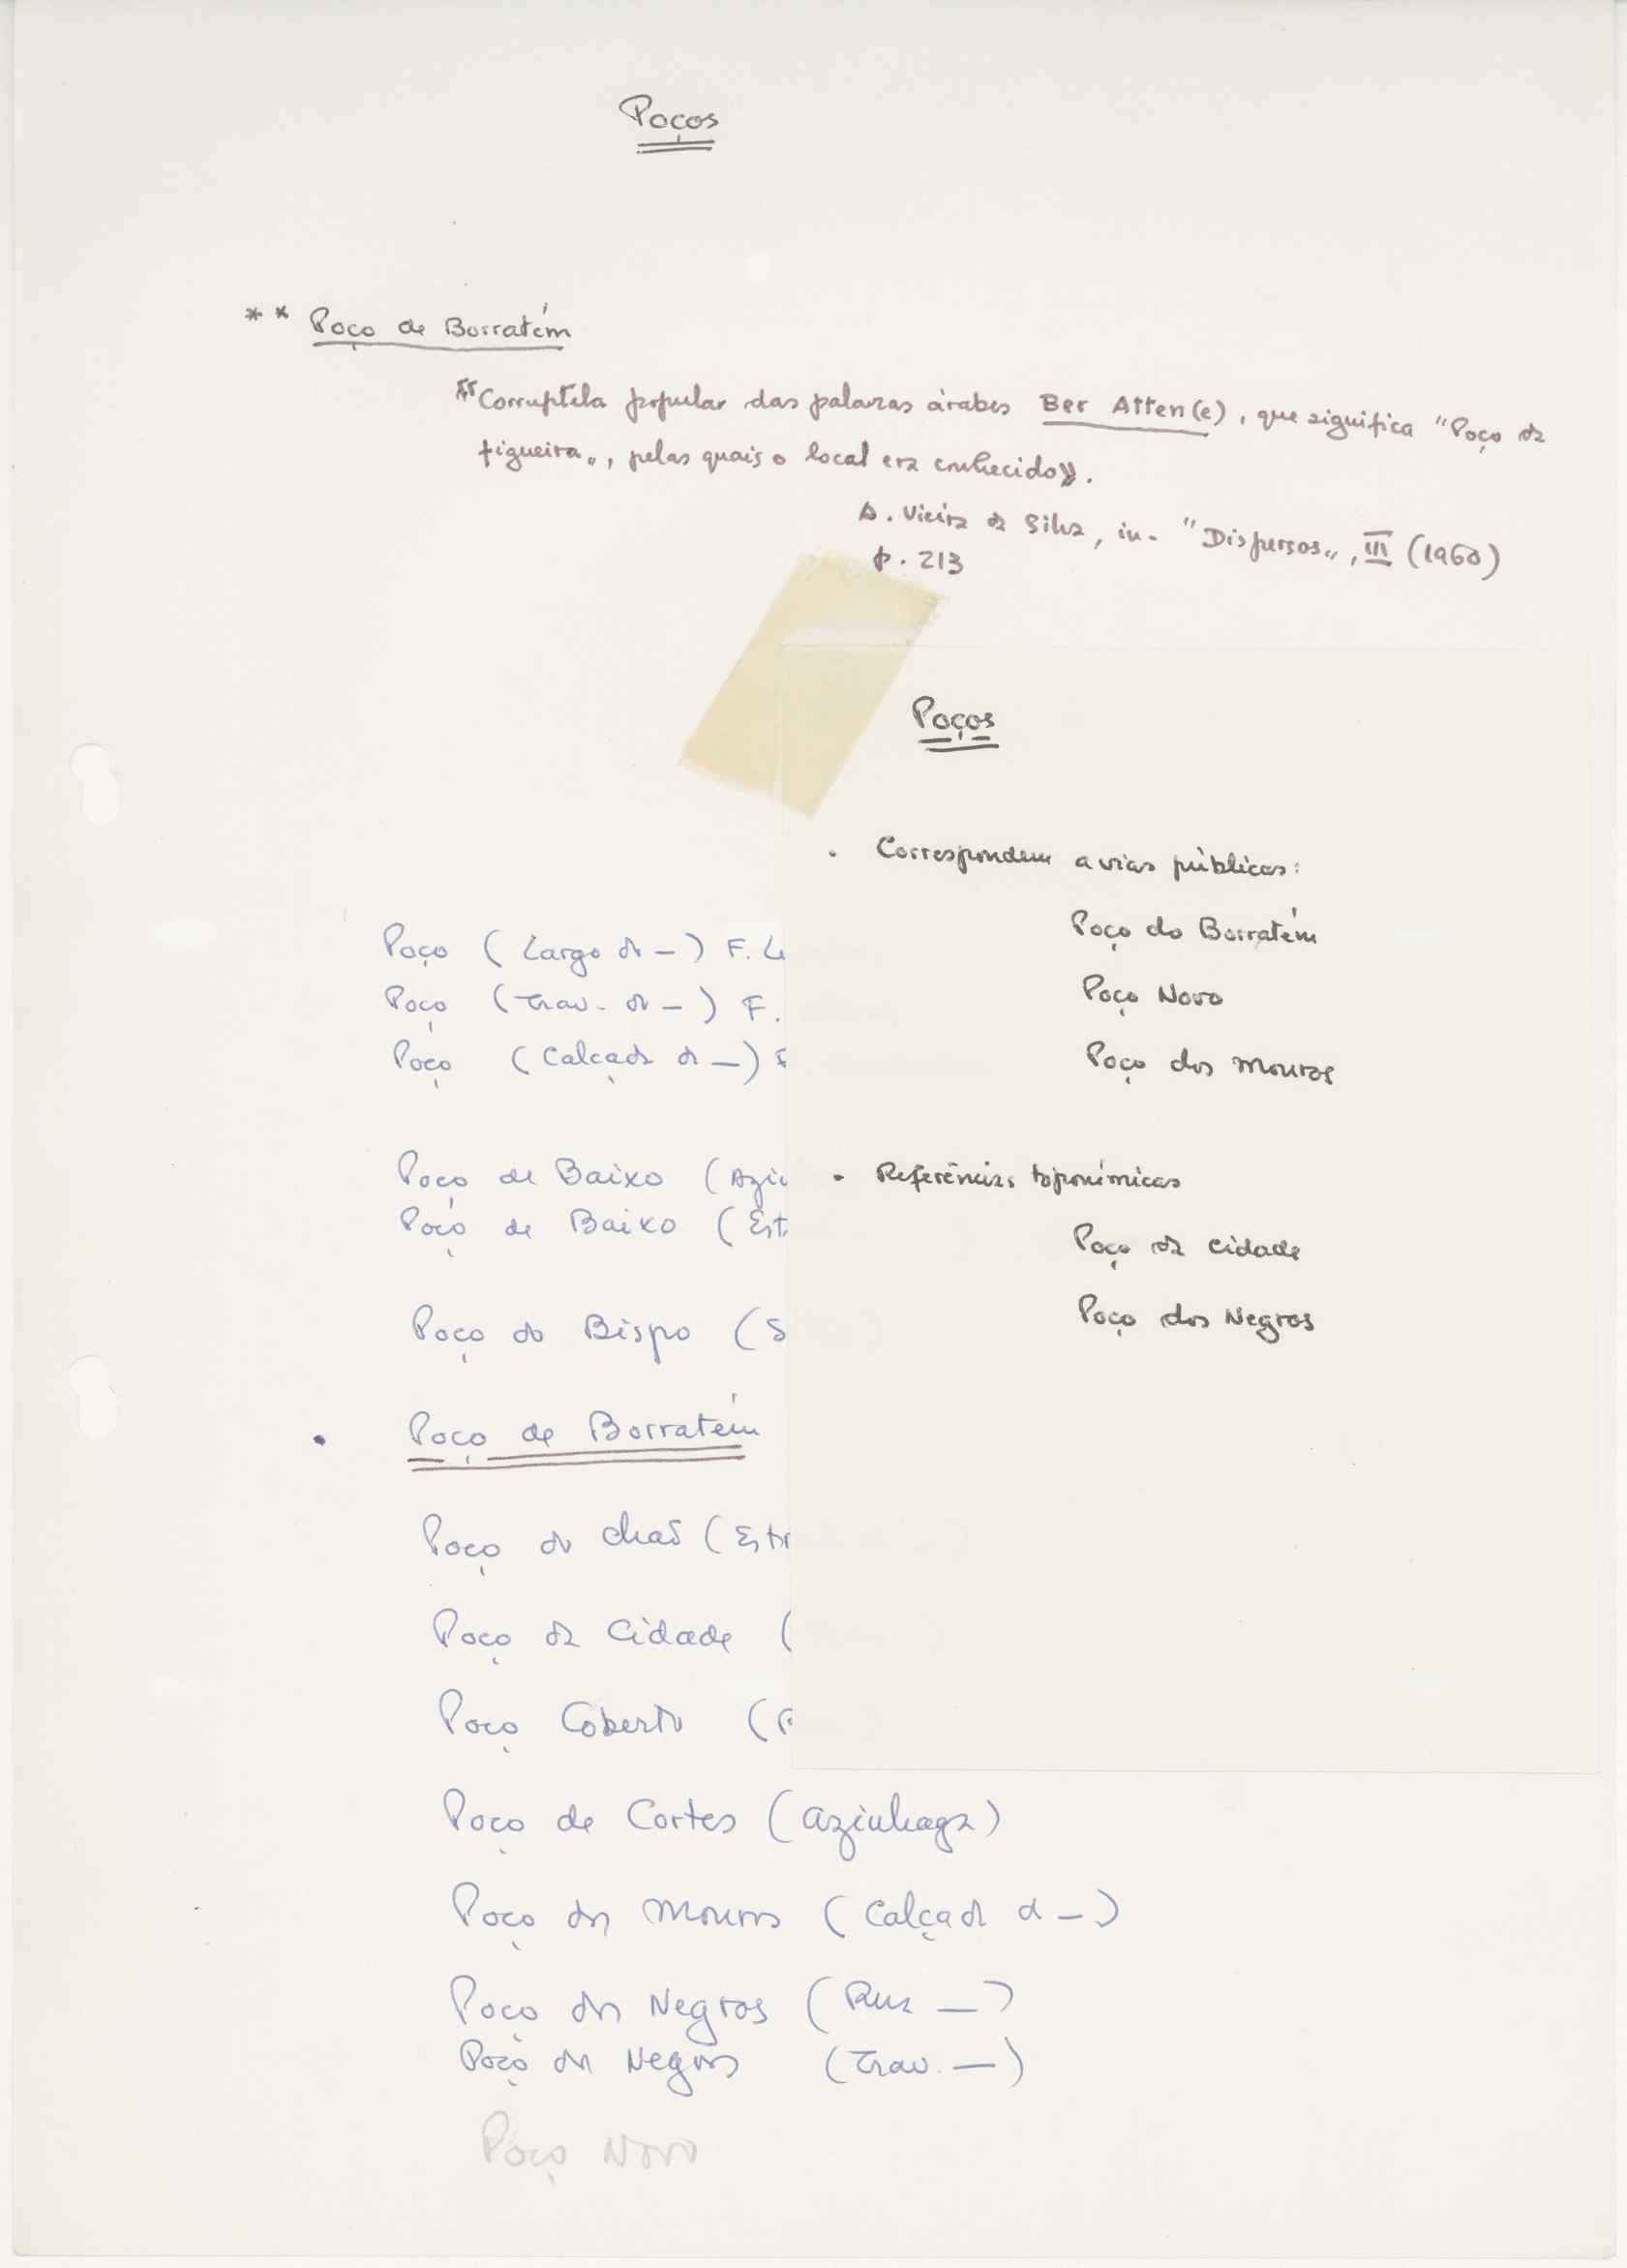 Poços
** Poço de Borratém
"Corruptela popular das palavras árabes Ber Atten(e), que significa "Poço da
figueira", pelas quais o local era conhecido».
A. Vieira da Silva, in- "Dispersos", III (1960)
p. 213
Poço (Largo do —) F.
Poço (Trav. do —) F.
Poço (Calçada do —)
Poço de Baixo (Azi
Poço de Baixo (Est
Poço do Bispo (
. Poço de Borratém
Poço do Chão (Estr
Poço da Cidade (
Poço Coberto (
Poço de Cortes (azinhaga)
Poço dos Mouros (Calçada d —)
Poço dos Negros (Rua —)
Poço dos Negros (Trav. —)
Poço Novo
Poços
. Correspondem a vias públicas:
Poço do Borratém
Poço Novo
Poço dos Mouros
. Referências toponímicas
Poço da Cidade
Poço dos Negros